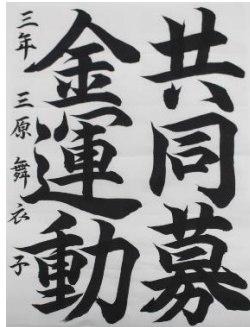 共同募
金運動
三年 三原舞衣子